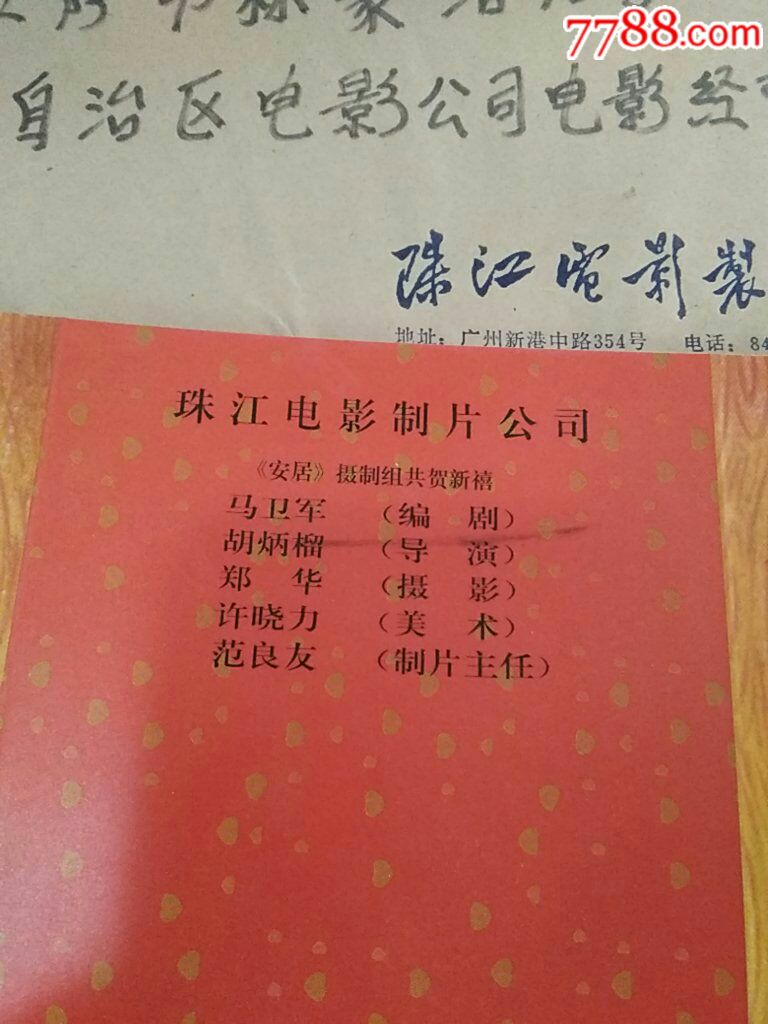 7788.com
自治区电影公司电影经
珠江電影製
地址：广州新港中路354号 电话：84
珠江电影制片公司
《安居》摄制组共贺新禧
马卫军 （编 剧）
胡炳榴 （导 演）
郑 华 （摄 影）
许晓力 （美 术）
范良友 （制片主任）